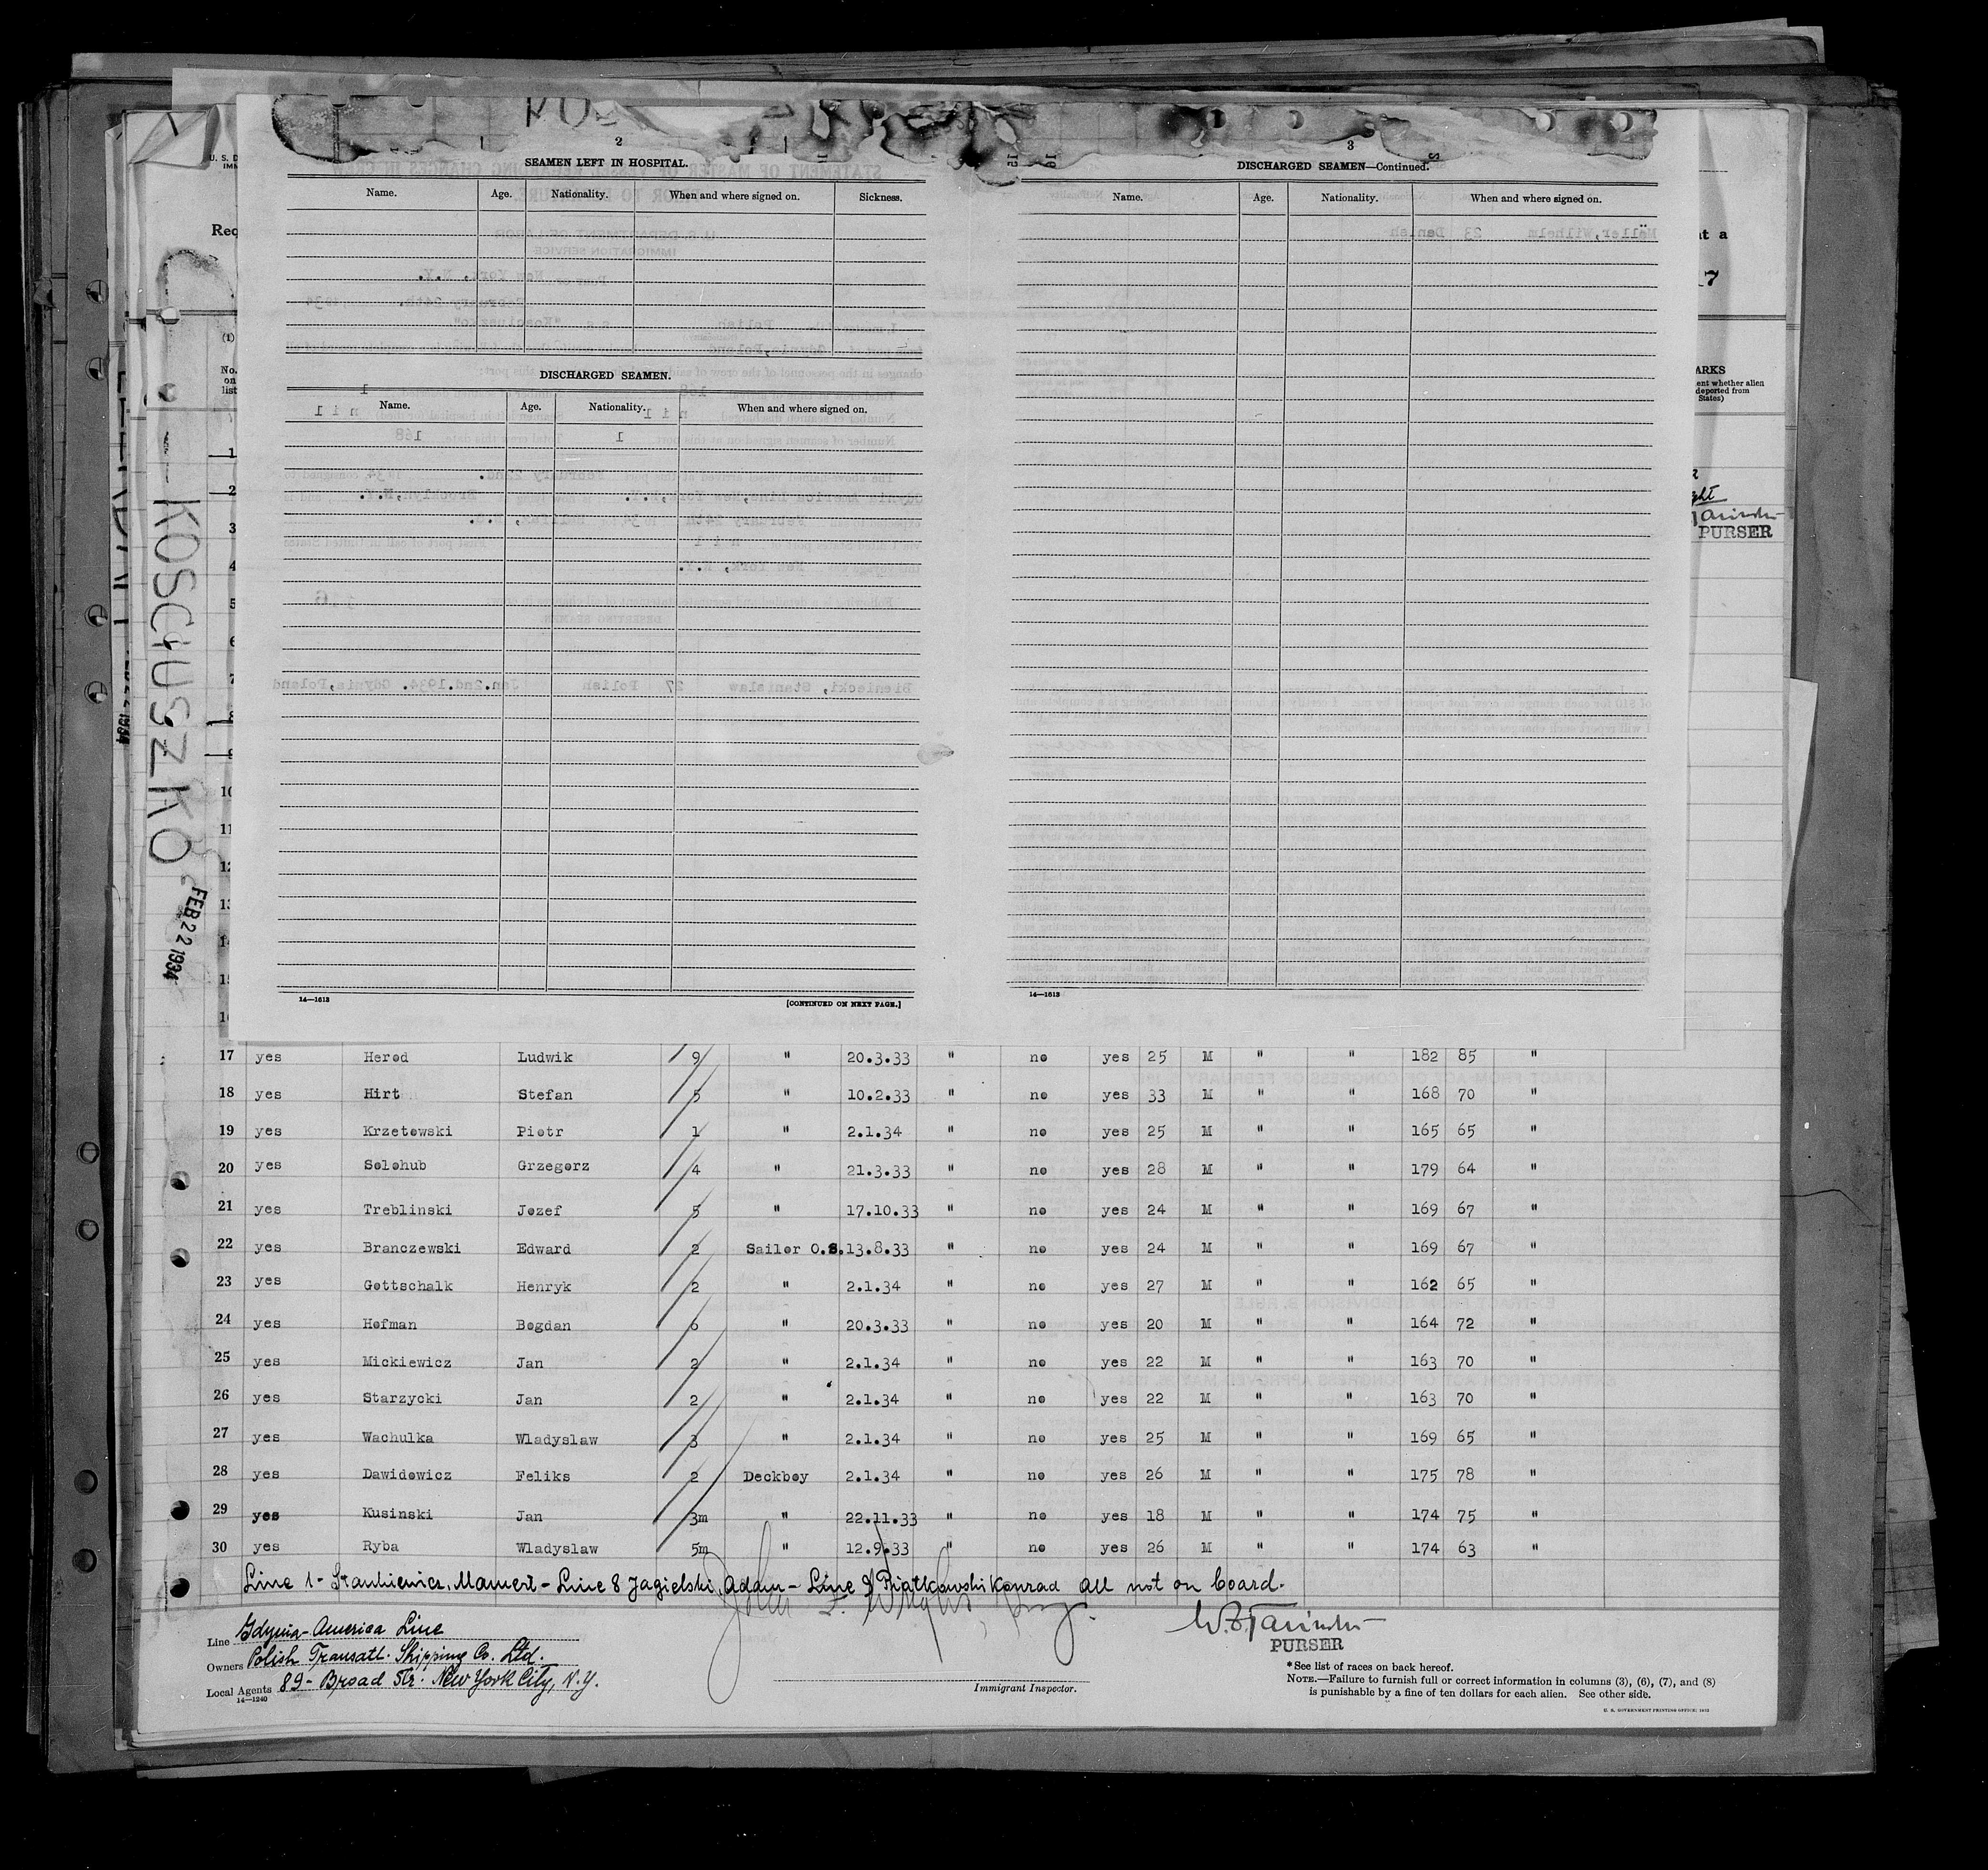 2
SEAMEN LEFT IN HOSPITAL.
Name. Age. Nationality. When and where signed on. Sickness.
DISCHARGED SEAMEN.
Name. Age. Nationality. When and where signed on.
14—1613 [CONTINUED ON NEXT PAGE.]
3
DISCHARGED SEAMEN—Continued.
Name. Age. Nationality. When and where signed on.
14—1613
KOSCIUSZKO
FEB 22 1934
U. S. D
IMM
Req
(1)
No.
on
list
1
2
3
4
5
6
7
8
9
10
11
12
13
14
15
16
at a
7
ARKS
ent whether alien
deported from
States)
PURSER
17 yes Herod Ludwik 9 " 20.3.33 " no yes 25 M " " 182 85 "
18 yes Hirt Stefan 5 " 10.2.33 " no yes 33 M " " 168 70 "
19 yes Krzetowski Piotr 1 " 2.1.34 " no yes 25 M " " 165 65 "
20 yes Solohub Grzegorz 4 " 21.3.33 " no yes 28 M " " 179 64 "
21 yes Treblinski Jozef 5 " 17.10.33 " no yes 24 M " " 169 67 "
22 yes Branczewski Edward 2 Sailor O.S. 13.8.33 " no yes 24 M " " 169 67 "
23 yes Gottschalk Henryk 2 " 2.1.34 " no yes 27 M " " 162 65 "
24 yes Hofman Bogdan 6 " 20.3.33 " no yes 20 M " " 164 72 "
25 yes Mickiewicz Jan 2 " 2.1.34 " no yes 22 M " " 163 70 "
26 yes Starzycki Jan 2 " 2.1.34 " no yes 22 M " " 163 70 "
27 yes Wachulka Wladyslaw 3 " 2.1.34 " no yes 25 M " " 169 65 "
28 yes Dawidowicz Feliks 2 Deckboy 2.1.34 " no yes 26 M " " 175 78 "
29 yes Kusinski Jan 3m " 22.11.33 " no yes 18 M " " 174 75 "
30 yes Ryba Wladyslaw 5m " 12.9.33 " no yes 26 M " " 174 63 "
Line 1 - Stankiewicz, Mamert - Line 8 Jagielski, Adam - Line 9 Piatkowski Konrad all not on board.
Line Gdynia-America Line
Owners Polish Transatl. Shipping Co. Ltd.
Local Agents 89 - Broad Str. New York City, N.Y.
14—1240
Immigrant Inspector.
PURSER
*See list of races on back hereof.
NOTE.—Failure to furnish full or correct information in columns (3), (6), (7), and (8)
is punishable by a fine of ten dollars for each alien. See other side.
U. S. GOVERNMENT PRINTING OFFICE: 1932